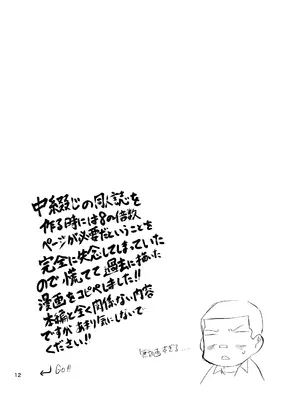 中綴じの同人誌を
作る時には8の倍数
ページが必要だということを
完全に失念してしまっていた
ので慌てて過去に描いた
漫画をコピペしました!!
本編と全く関係ない内容
ですがあまり気にしないで
ください!!
↵ GO!!
無計画すぎる…
12